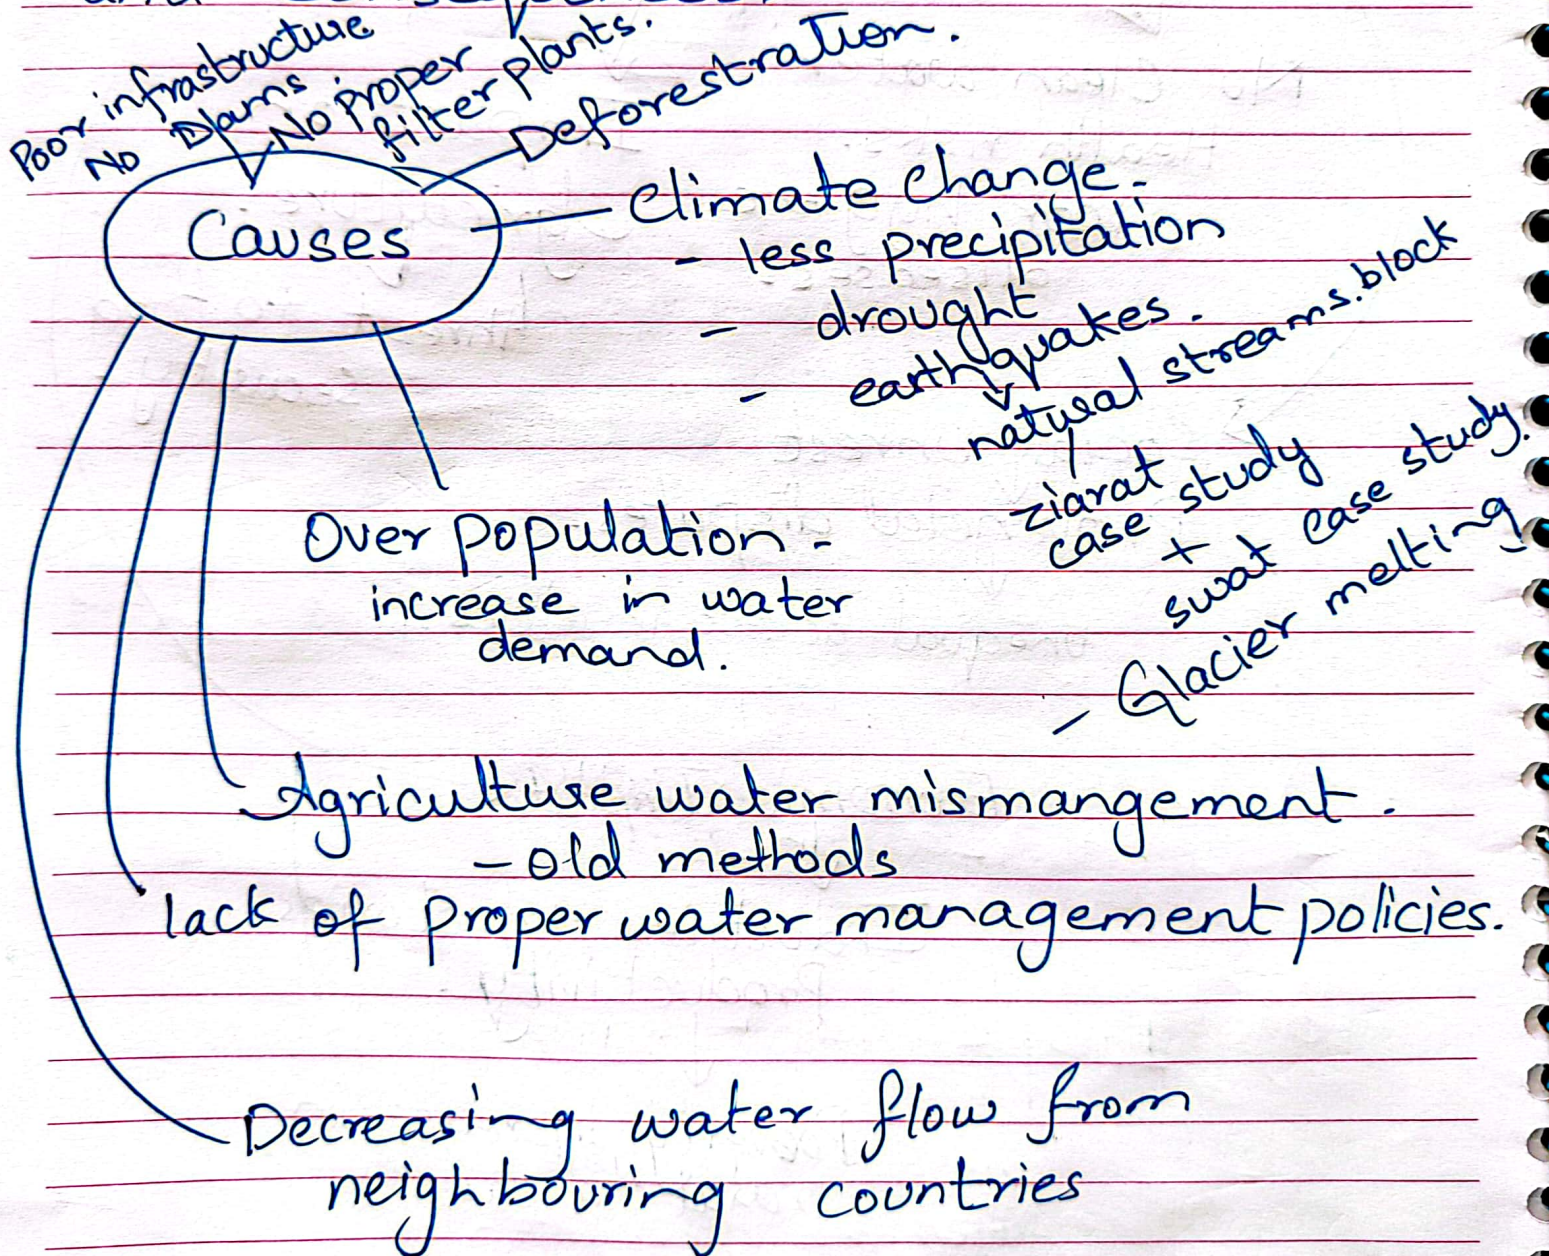 Poor infrastructure
No Dams
No proper
filter plants.
Deforestration.
Causes
Climate change.
- less precipitation
- drought
- earthquakes.
natural streams.block
ziarat
case study
+
swat case study.
- Glacier melting
Over population -
increase in water
demand.
Agriculture water mismangement.
- old methods
lack of proper water management policies.
Decreasing water flow from
neighbouring countries